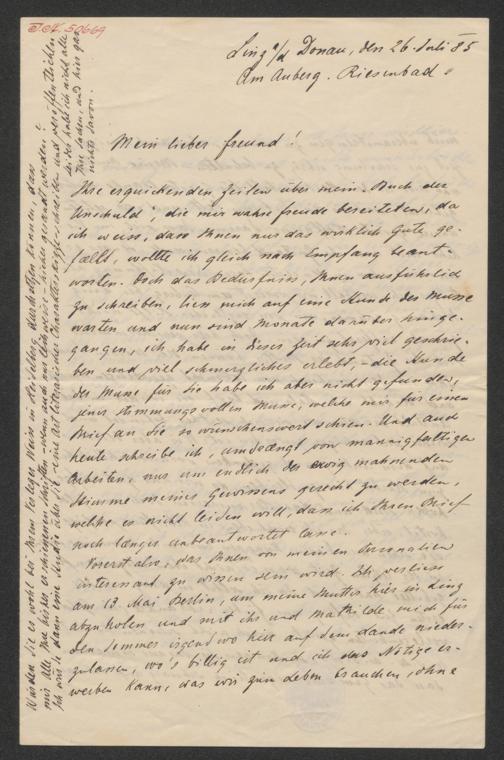 I.N. 50669
Linz a/d Donau, den 26. Juli 85
Am Auberg. Riesenbad.
Mein lieber Freund!
Ihre erquickenden Zeilen über mein „Buch der
Unschuld", die mir wahre Freude bereiteten, da
ich weiss, dass Ihnen nur das wirklich Gute ge-
fällt, wollte ich gleich nach Empfang beant-
worten. Doch das Bedürfniss, Ihnen ausführlich
zu schreiben, liess mich auf eine Stunde der Musse
warten und nun sind Monate darüber hinge-
gangen, ich habe in dieser Zeit sehr viel geschrie-
ben und viel schmerzliches erlebt, – die Stunde
der Musse für Sie habe ich aber nicht gefunden,
jener stimmungsvollen Musse, welche mir für einen
Brief an Sie so wünschenswert schien. Und auch
heute schreibe ich, umdrängt von mannigfaltigen
Arbeiten, nur um endlich der ewig mahnenden
Stimme meines Gewissens gerecht zu werden,
welche es nicht leiden will, dass ich Ihren Brief
noch länger unbeantwortet lasse.
Vorerst also, was Ihnen von meinen Personalien
interessant zu wissen sein wird. Ich verliess
am 13. Mai Berlin, um meine Mutter hier in Linz
abzuholen und mit ihr und Mathilde mich für
den Sommer irgend wo hier auf dem Lande nieder-
zulassen, wo's billig ist und ich das Nötige er-
werben kann, was wir zum Leben brauchen, ohne
Würden Sie es wohl bei Ihrem Verleger Weiss in Heidelberg durchsetzen können, dass
mir alle Ihre bisher erschienenen Schriften – wenn auch nur leihweise – hieher gesandt werden?
Ich will dann eine Studie über Sie – eine Art literarischer Charakterskizze – schreiben und veröffentlichen
leider habe ich nicht alle
Ihre Sachen, und hier gar
nichts davon.